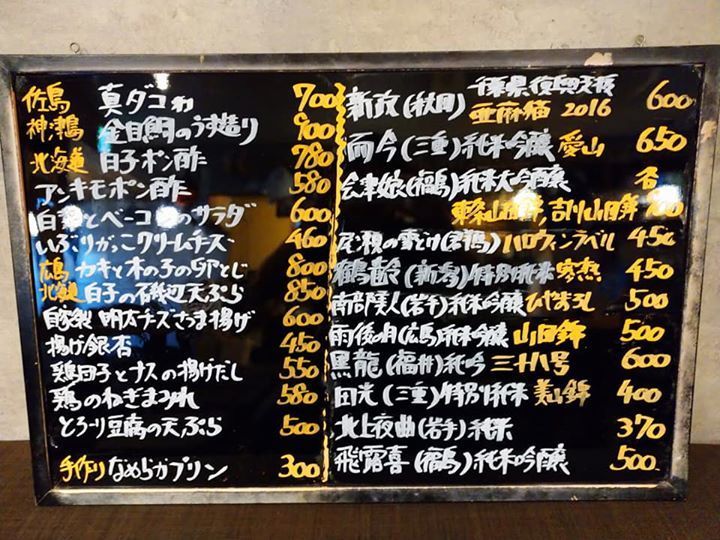 佐島 真ダコわ 700
神津島 金目鯛のうす造り 900
北海道 白子ポン酢 780
アンキモポン酢 580
白菜とベーコンのサラダ 600
いぶりがっこクリームチーズ 460
広島 カキと木の子の卵とじ 800
北海道 白子の磯辺天ぷら 850
自家製 明太チーズさつま揚げ 600
揚げ銀杏 450
鶏団子とナスの揚げだし 550
鶏のねぎまみれ 580
とろーり豆腐の天ぷら 500
手作り なめらかプリン 300
千葉県復興支援
新政(秋田) 亜麻猫 2016 600
而今(三重)純米吟醸 愛山 650
会津娘(福島)純米大吟醸 各
山田錦 700
尾瀬の雪どけ(群馬) ハロウィンラベル 450
鶴齢(新潟)特別純米 寒熟 450
南部美人(岩手)純米吟醸 ひやおろし 500
雨後の月(広島)純米吟醸 山田錦 500
黒龍(福井)純吟 三十八号 600
田光(三重)特別純米 美山錦 400
北上夜曲(岩手)純米 370
飛露喜(福島)純米吟醸 500